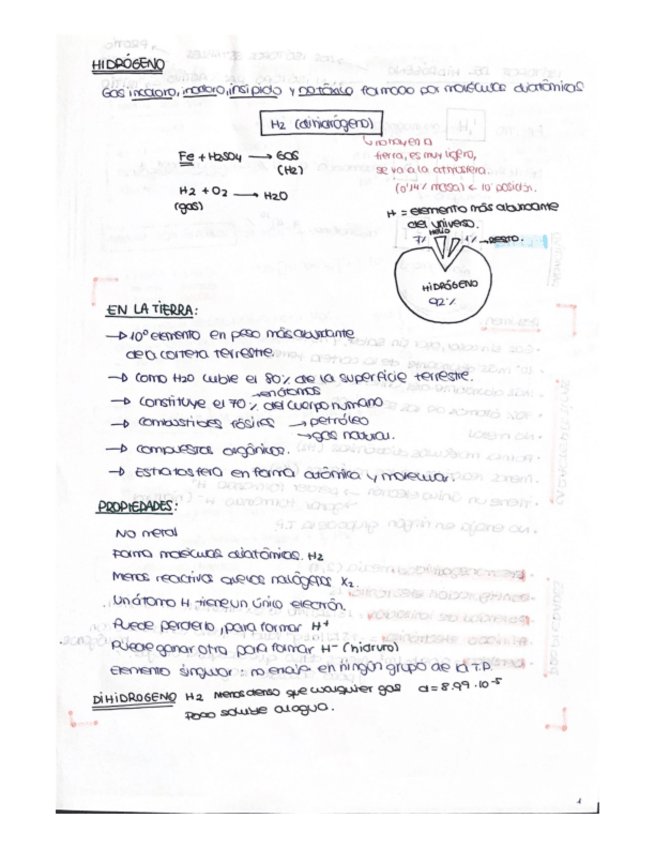 HIDRÓGENO
Gas incoloro, inodoro, insípido y no tóxico formado por moléculas diatómicas
H2 (dihidrógeno)
Fe + H2SO4 → GAS
(H2)
H2 + O2 → H2O
(gas)
no hay en a
tierra, es muy ligero,
se va a la atmosfera.
(0'14% masa) < 10ª posición.
H = elemento más abundante
del universo.
HELIO
7% 1% → RESTO.
HIDRÓGENO
92%
EN LA TIERRA:
→ 10º elemento en peso más abundante
de a corteza terrestre.
→ Como H2O cubre el 80% de la superficie terrestre.
→ en átomos
→ Constituye el 70% del cuerpo humano
→ Combustibles fósiles → petróleo
→ gas natural.
→ Compuestos orgánicos.
→ Estratosfera en forma atómica y molecular.
PROPIEDADES:
No metal
Forma moléculas diatómicas. H2
Menos reactivo que los halógenos X2.
Un átomo H tiene un único electrón.
Puede perderlo, para formar H+
Puede ganar otro para formar H- (hidruro)
Elemento singular: no encaja en ningún grupo de la T.P.
DIHIDROGENO H2 Menos denso que cualquier gas d = 8.99·10-5
Poco soluble al agua.
1